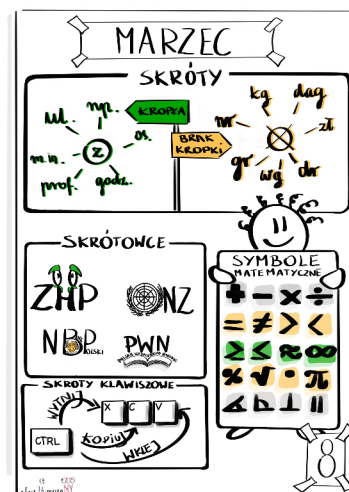 MARZEC
SKRÓTY
np.
ul.
KROPKA
z
os.
m.in.
prof.
godz.
kg
dag
nr
zł
BRAK
KROPKI
gr
wg
dr
SKRÓTOWCE
ZHP
ONZ
NBP
POLSKI
PWN
SYMBOLE
MATEMATYCZNE
+ − × ÷
= ≠ > <
≥ ≤ ≈ ∞
% √ • π
∡ ⊥ ||
SKRÓTY KLAWISZOWE
WYTNIJ
X C V
CTRL
KOPIUJ
WKLEJ
8